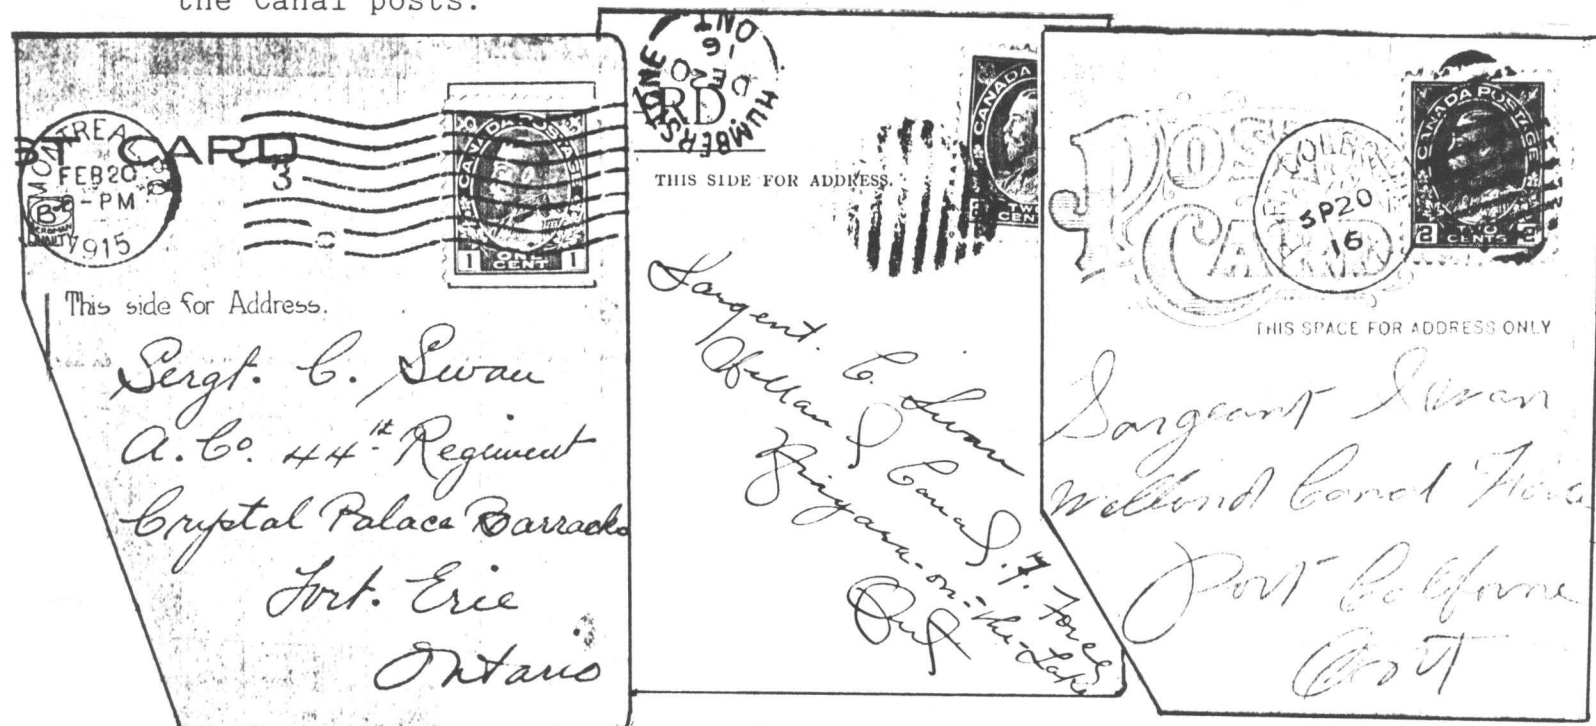 the Canal posts.
ST CARD
MONTREAL
FEB 20
8-PM
1915
3
C
CANADA POSTAGE
1 ONE CENT 1
This side for Address.
Sergt. C. Swan
A. Co. 44th Regiment
Crystal Palace Barracks
Fort. Erie
Ontario
HUMBERSTONE
ONT
FE 20
16
RD
CANADA
TWO CENT
THIS SIDE FOR ADDRESS.
Sargent. C. Swan
Welland Canal. F. Force
Niagara-on-the-Lake
Ont
POST CARD
PORT COLBORNE
SP 20
16
CANADA POSTAGE
2 TWO CENTS 2
THIS SPACE FOR ADDRESS ONLY
Sargeant Swan
Welland Canal Force
Port Colborne
Ont